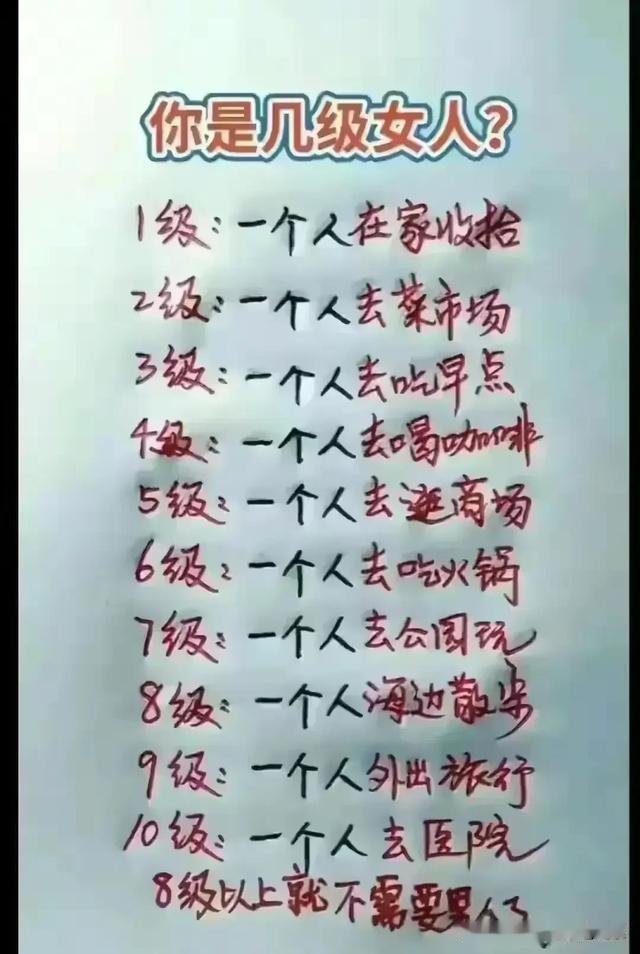 你是几级女人?
1级:一个人在家收拾
2级:一个人去菜市场
3级:一个人去吃早点
4级:一个人去喝咖啡
5级:一个人去逛商场
6级:一个人去吃火锅
7级:一个人去公园玩
8级:一个人海边散步
9级:一个人外出旅行
10级:一个人去医院
8级以上就不需要男人了